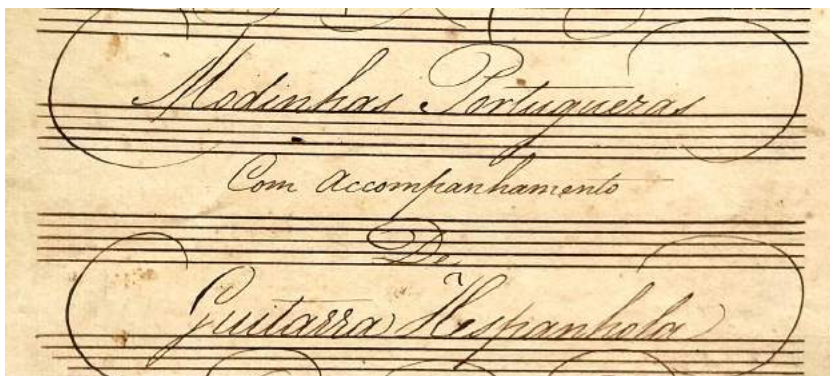 Modinhas Portuguezas
Com Accompanhamento
De
Guitarra Hespanhola